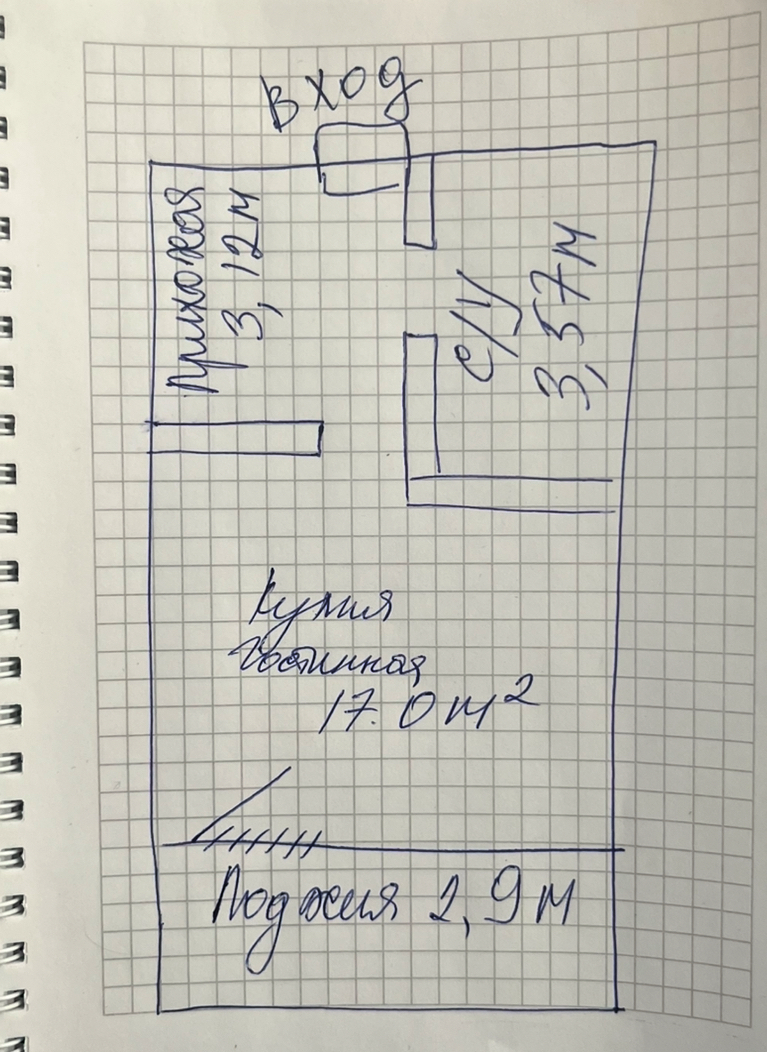 вход
Прихожая
3,12м
с/у
3,57м
Кухня
Гостинная
17.0 м²
Лоджия 2,9м